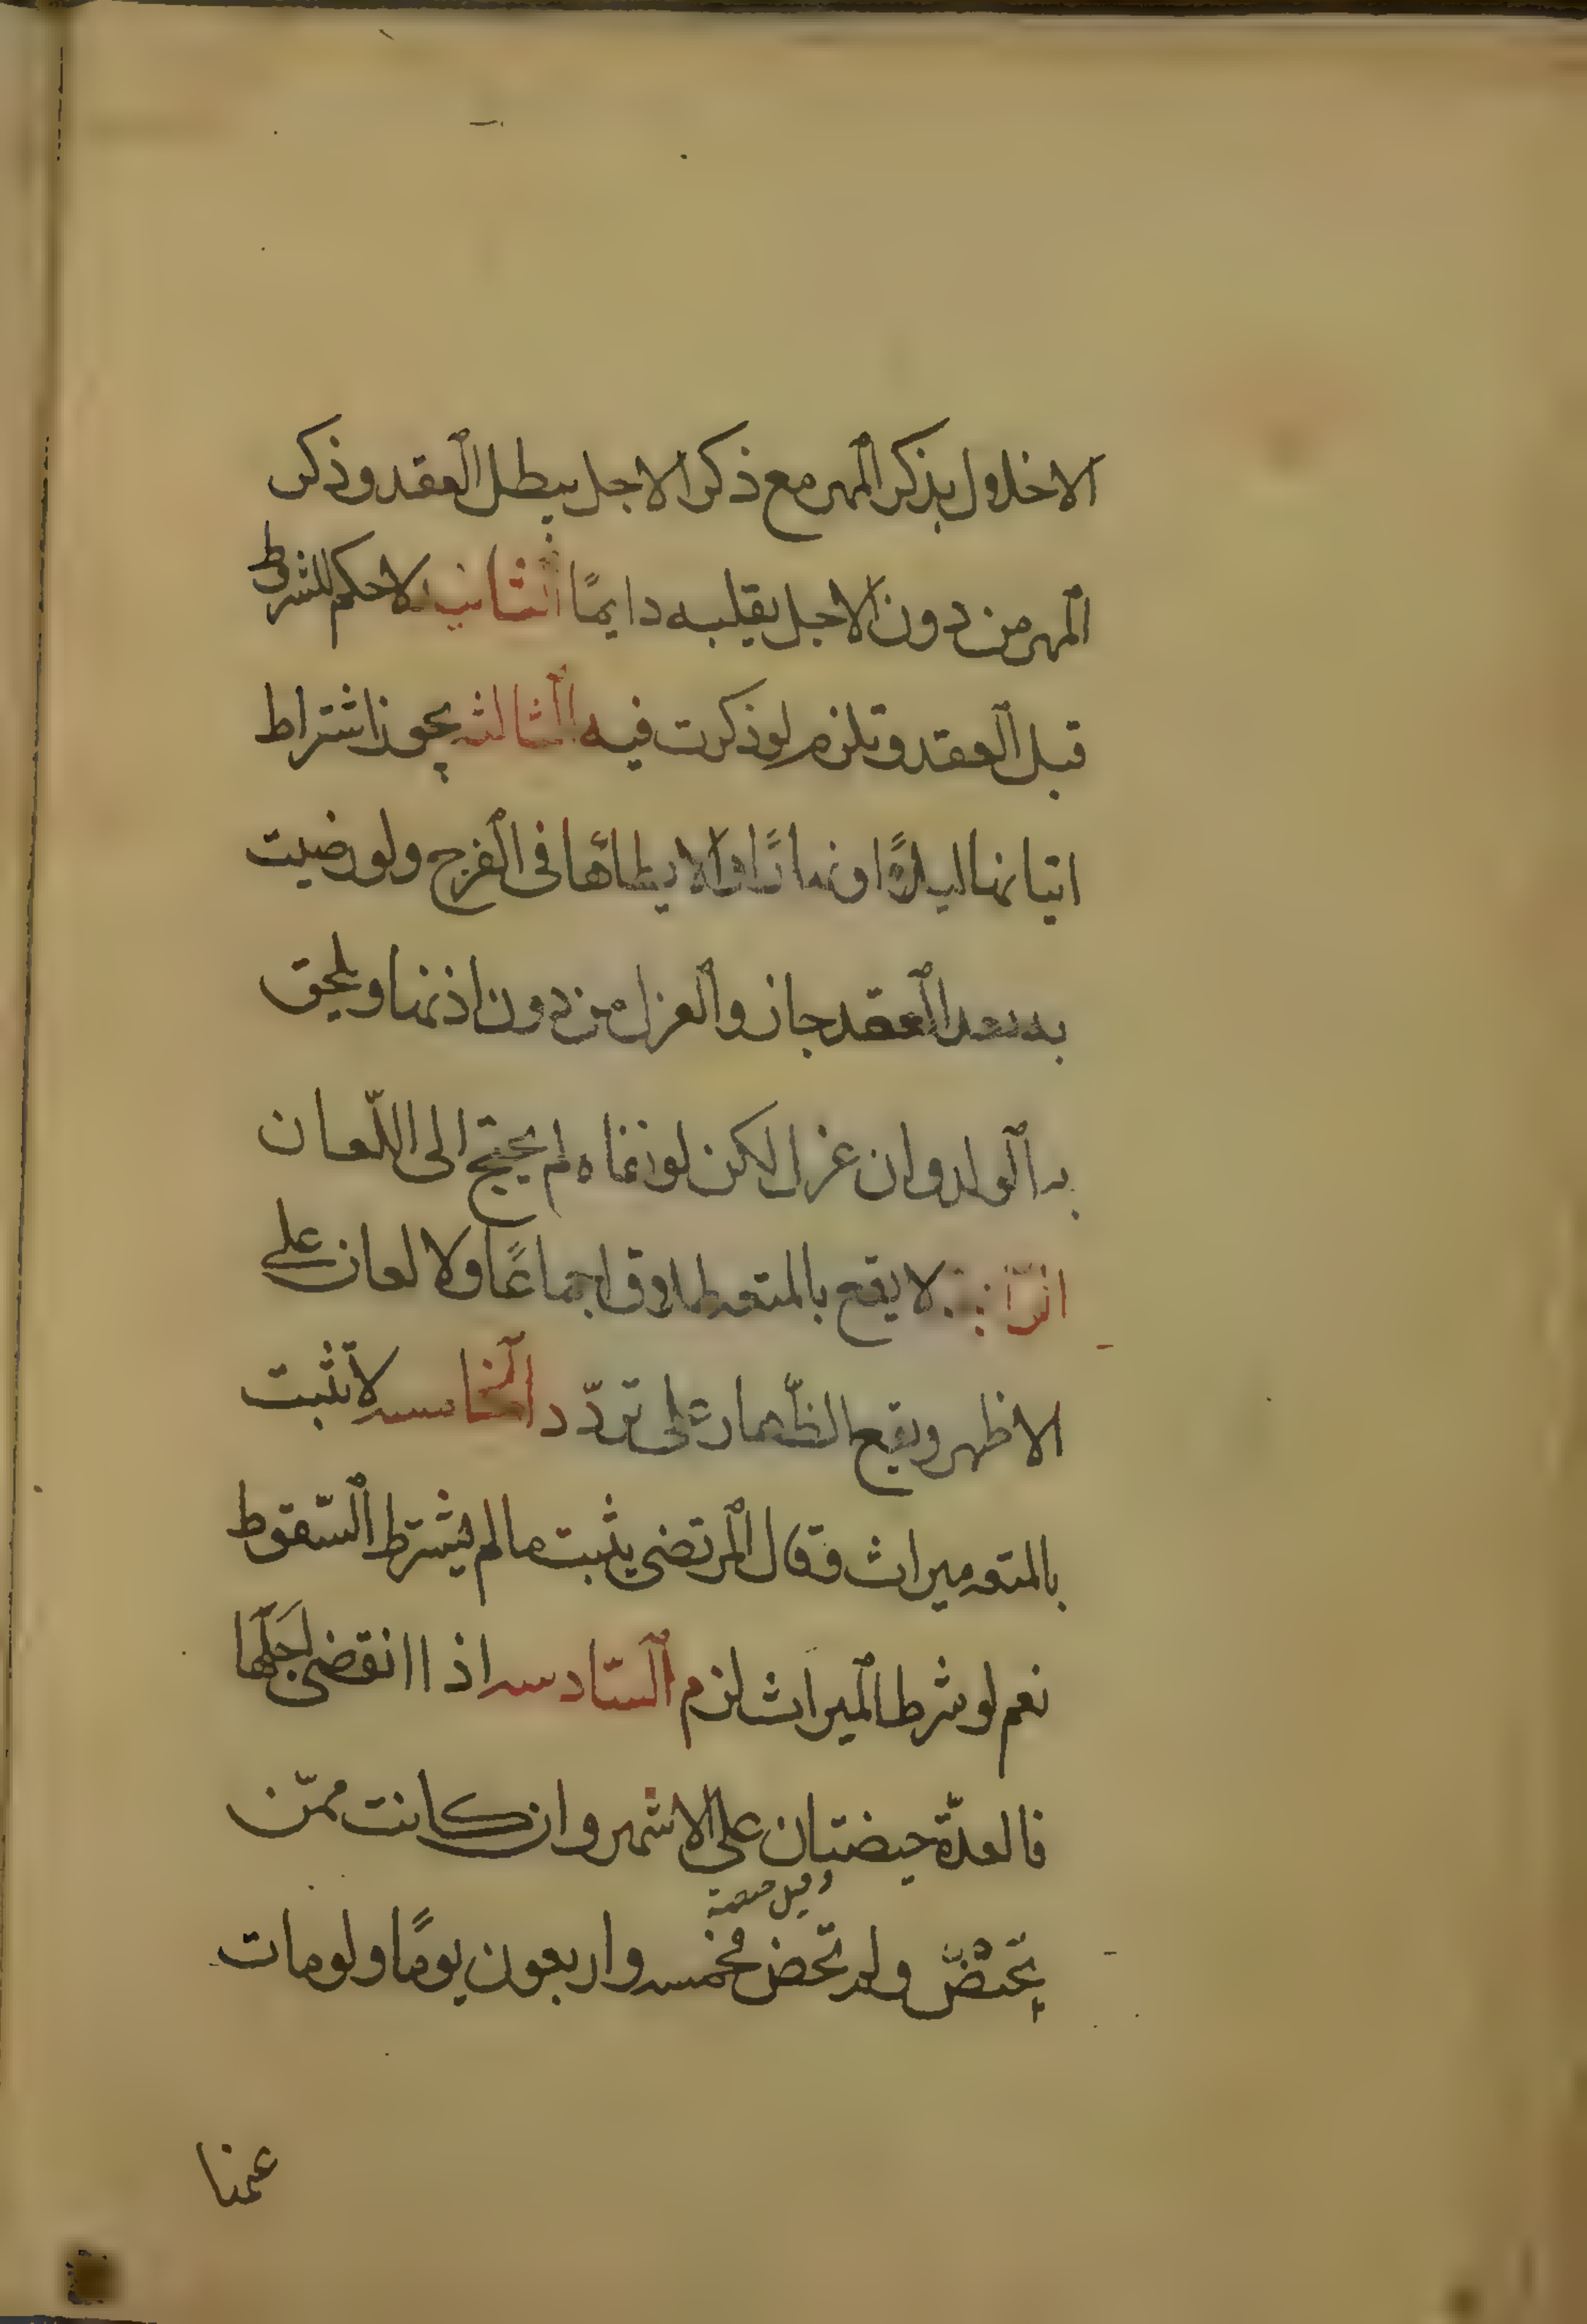 الاخلال بذكر المهر مع ذكر الاجل يبطل العقد وذكر
المهر من دون الاجل يقلبه دايمًا الثانية لا حكم للشرط
قبل العقد وتلزم لو ذكرت فيه الثالثه يجوز اشتراط
اتيانها ليلاً او نهارًا وان لا يطأها فى الفرج ولو رضيت
به بعد العقد جاز والعزل من دون اذنها ويلحق
به الولد وان عزل لكن لو نفاه لم يحتج الى اللّعان
الرّابعة لا يقع بالمتعه طلاق اجماعًا ولا لعان على
الاظهر ويقع الظّهار على تردّد الخامسه لا تثبت
بالمتعه ميراث وقال المرتضى يثبت ما لم يشترط السّقوط
نعم لو شرط الميراث لزم السّادسه اذا انقضى اجلها
فالعدّة حيضتان على الاشهر وان كانت ممّن
تحيض ولم تحض فخمسه واربعون يومًا ولو مات
عنها